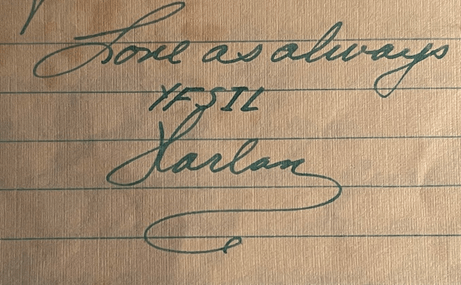 Love as always
YFSIL
Harlan